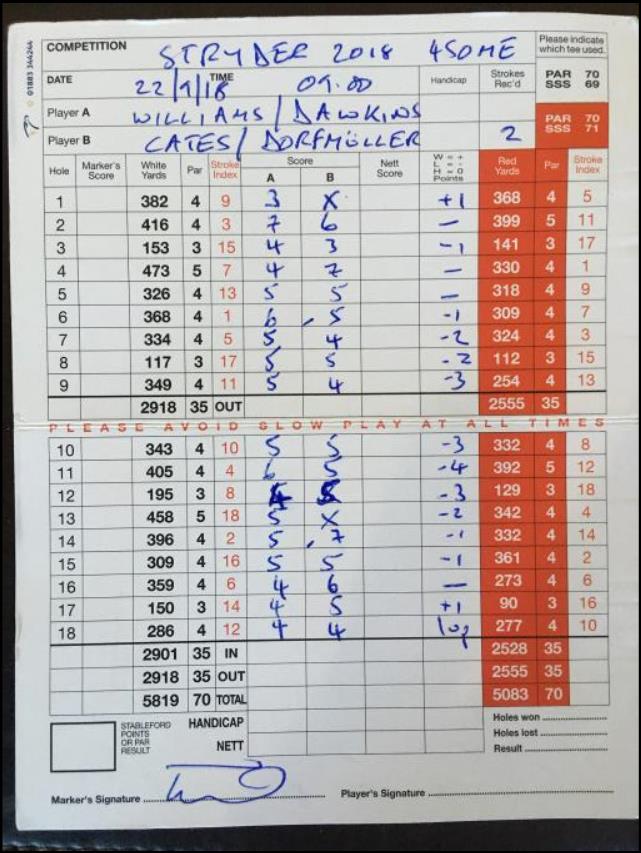 01883 344244
COMPETITION STRYDER 2018 4SOME Please indicate which tee used.
DATE 22/9/18 TIME 09.00 Handicap Strokes Rec'd PAR 70 SSS 69
Player A WILLIAMS / DAWKINS PAR 70 SSS 71
Player B CATES / DORFMÜLLER 2
Hole Marker's Score White Yards Par Stroke Index Score A B Nett Score W = + L = - H = O Points Red Yards Par Stroke Index
1 382 4 9 3 X +1 368 4 5
2 416 4 3 7 6 — 399 5 11
3 153 3 15 4 3 -1 141 3 17
4 473 5 7 4 7 — 330 4 1
5 326 4 13 5 5 — 318 4 9
6 368 4 1 6 , 5 -1 309 4 7
7 334 4 5 5 4 -2 324 4 3
8 117 3 17 5 5 -2 112 3 15
9 349 4 11 5 4 -3 254 4 13
2918 35 OUT 2555 35
PLEASE AVOID SLOW PLAY AT ALL TIMES
10 343 4 10 5 5 -3 332 4 8
11 405 4 4 6 5 -4 392 5 12
12 195 3 8 4 -3 129 3 18
13 458 5 18 5 X -2 342 4 4
14 396 4 2 5 , 7 -1 332 4 14
15 309 4 16 5 5 -1 361 4 2
16 359 4 6 4 6 — 273 4 6
17 150 3 14 4 5 +1 90 3 16
18 286 4 12 4 4 1up 277 4 10
2901 35 IN 2528 35
2918 35 OUT 2555 35
5819 70 TOTAL 5083 70
STABLEFORD POINTS OR PAR RESULT HANDICAP Holes won
Holes lost
NETT Result
Marker's Signature Player's Signature